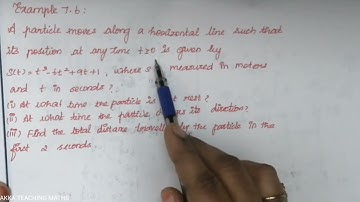 Example 7.6:
A particle moves along a horizontal line such that
its position at any time t≥0 is given by
s(t) = t³-6t²+9t+1, where s measured in meters
and t in seconds?
(i) At what time the particle is at rest?
(ii) At what time the particle its direction?
(iii) Find the total distance by the particle in the
first 2 seconds.
AKKA TEACHING MATHS